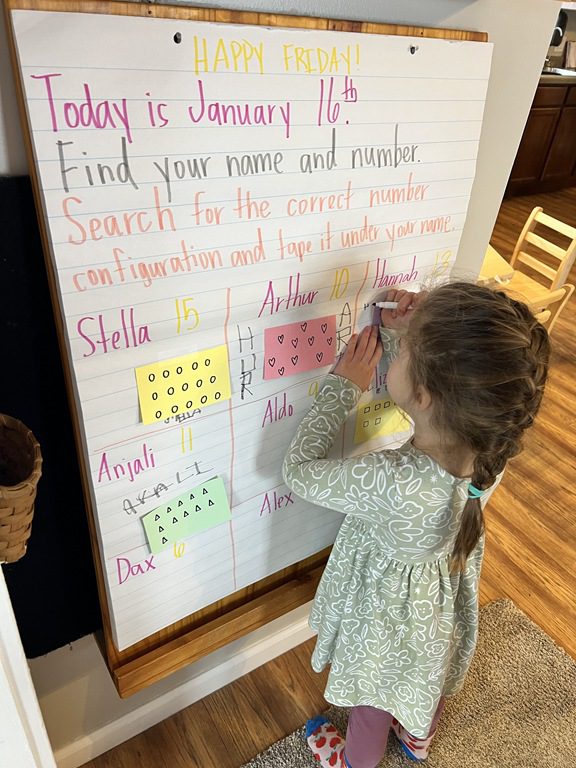 HAPPY FRIDAY!
Today is January 16th.
Find your name and number.
Search for the correct number
configuration and tape it under your name.
Stella 15
Arthur 10
Hannah 13
Anjali 11
Aldo
Dax 6
Alex